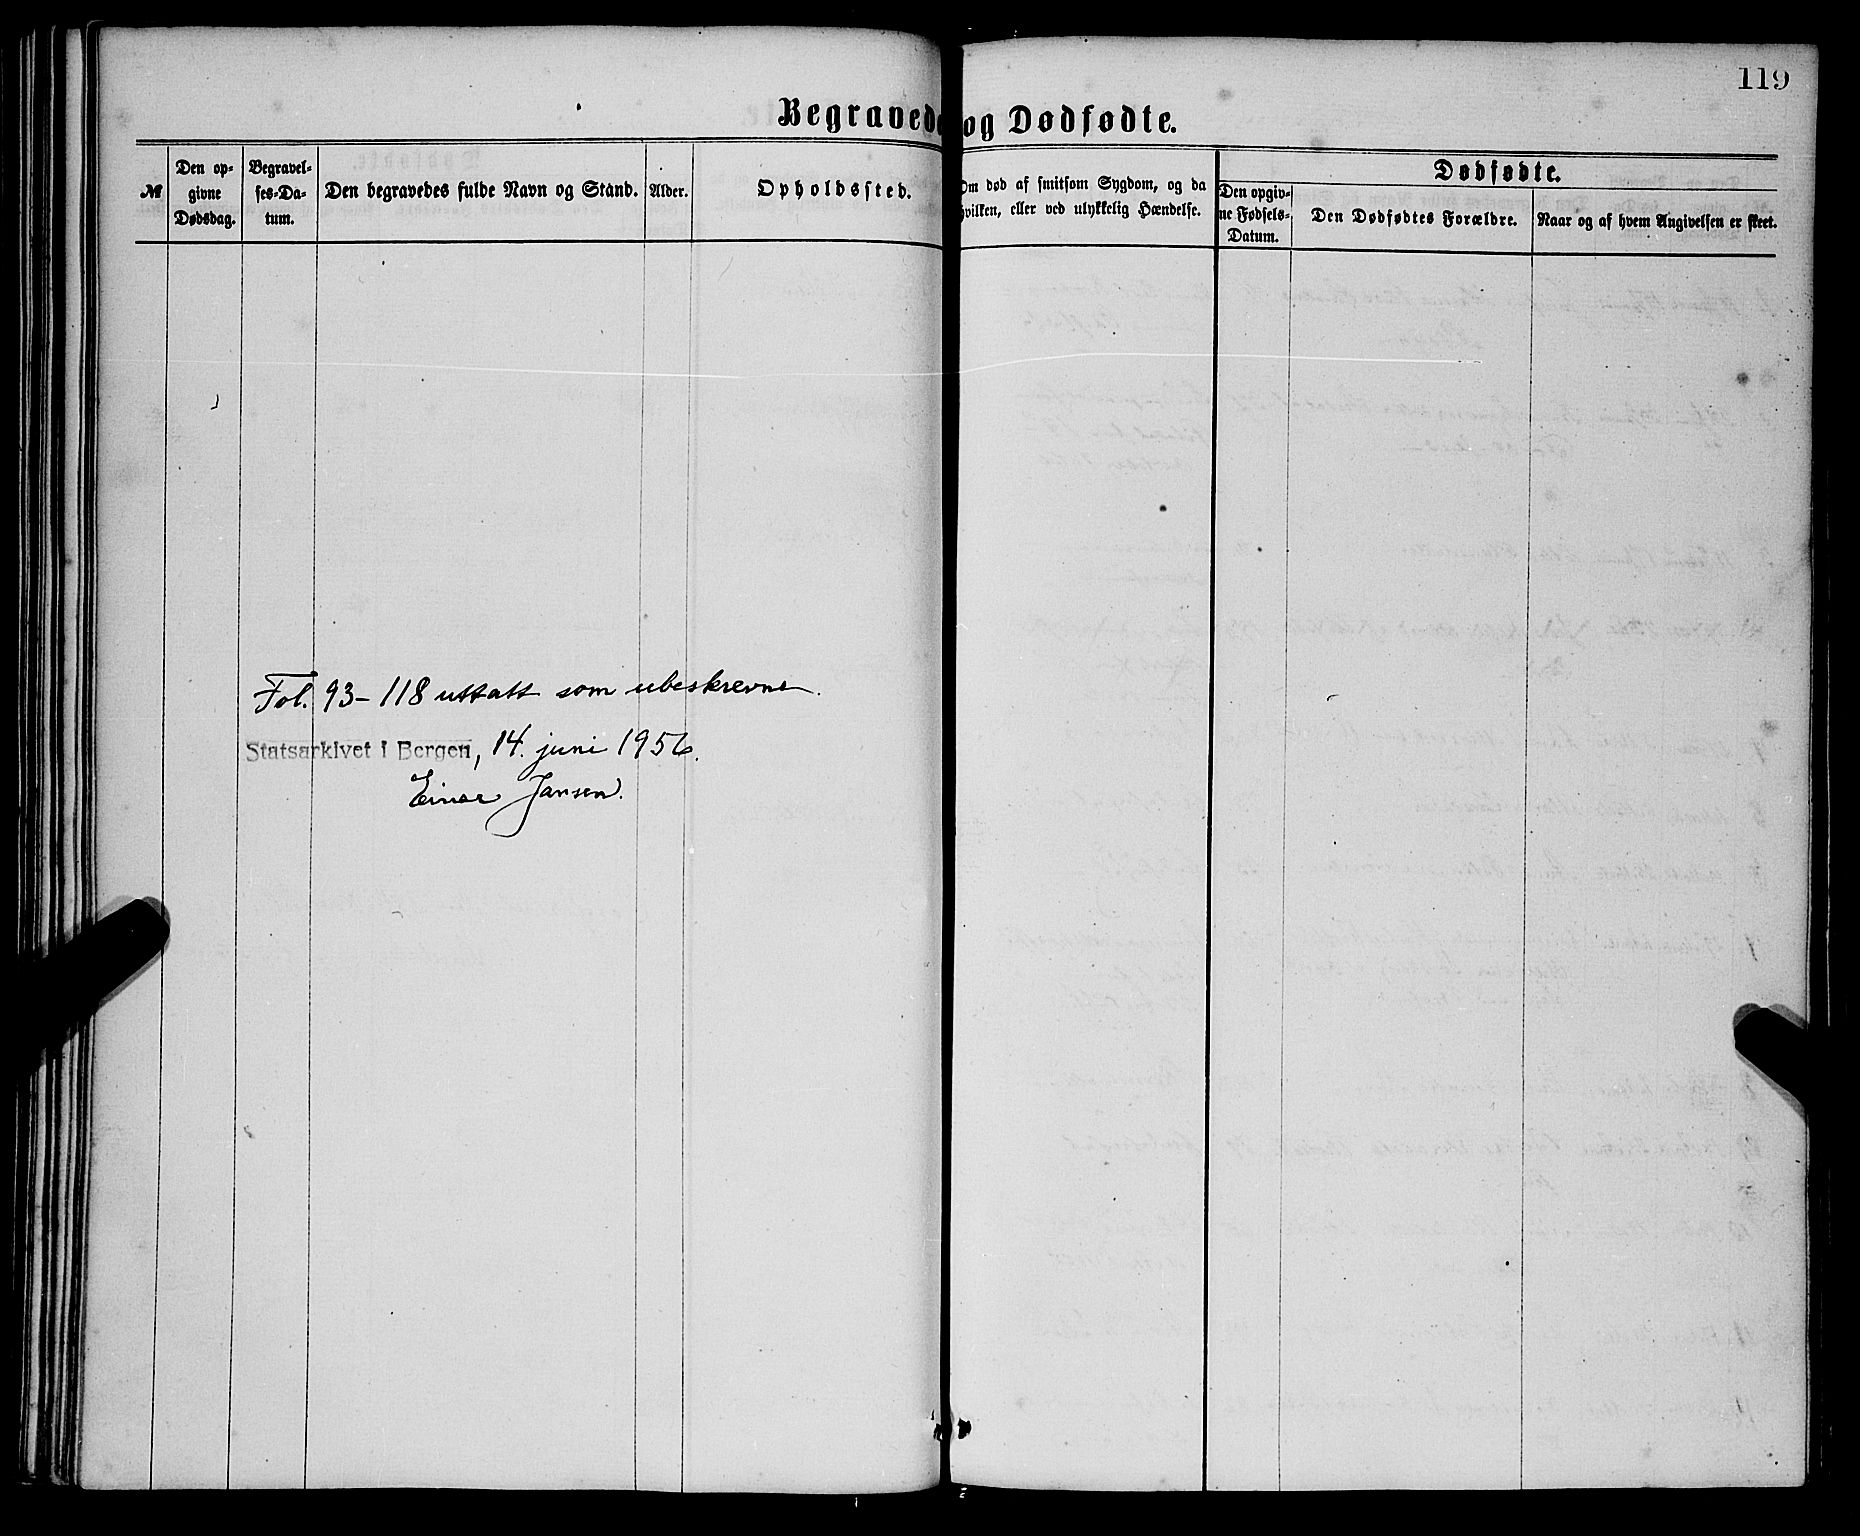 119
Begravede og Dødfødte.
№
Den op-
givne
Dødsdag.
Begravel-
ses-Da-
tum.
Den begravedes fulde Navn og Stand.
Alder.
Opholdssted.
Om død af smitsom Sygdom, og da
hvilken, eller ved ulykkelig Hændelse.
Dødfødte.
Den opgiv-
ne Fødsels-
Datum.
Den Dødfødtes Forældre.
Naar og af hvem Angivelsen er skeet.
Fol. 93-118 uttatt som ubeskrevne.
Statsarkivet i Bergen, 14. juni 1956.
Einar Jansen.